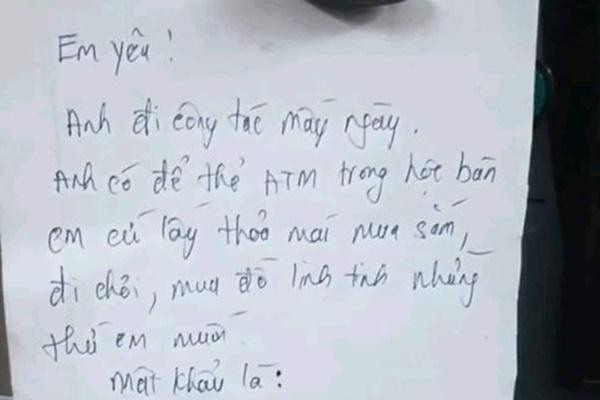 Em yêu !
Anh đi công tác mấy ngày.
Anh có để thẻ ATM trong hộc bàn
em cứ lấy thoả mái mua sắm,
đi chơi, mua đồ linh tinh những
thứ em muốn.
Mật khẩu là: